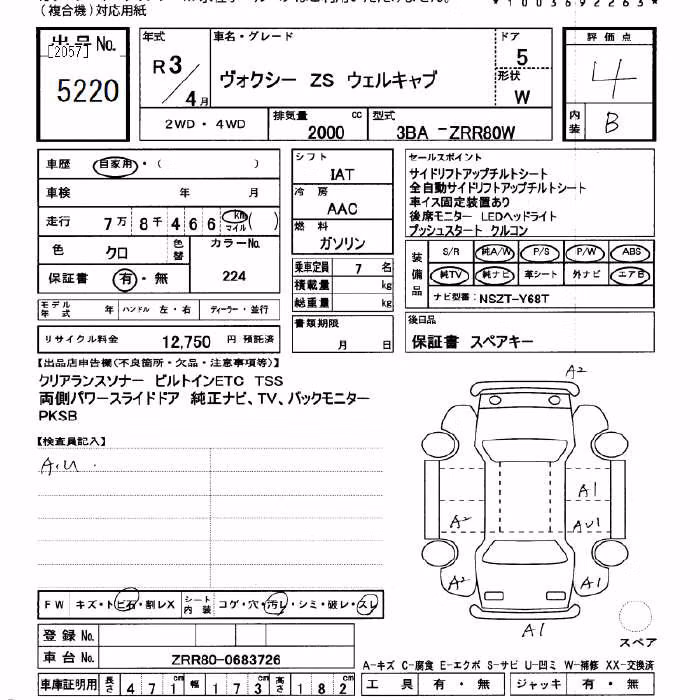 (複合機)対応用紙
*1003692263*
出品No.
[2057]
5220
年式
R 3/4月
車名・グレード
ヴォクシー ZS ウェルキャブ
ドア
5
形状
W
評価点
4
内装
B
2WD・4WD
排気量
2000 cc
型式
3BA -ZRR80W
車歴 自家用・( )
車検 年 月
走行 7万 8千 4 6 6 km マイル ( )
色 クロ
色替
カラーNo.
224
保証書 有・無
モデル年式 年 ハンドル 左・右 ディーラー・並行
リサイクル料金 12,750 円 預託済
シフト
IAT
冷房
AAC
燃料
ガソリン
乗車定員 7 名
積載量 kg
総重量 kg
書類期限
月 日
セールスポイント
サイドリフトアップチルトシート
全自動サイドリフトアップチルトシート
車イス固定装置あり
後席モニター LEDヘッドライト
プッシュスタート クルコン
装備品
S/R 純A/W P/S P/W ABS
純TV 純ナビ 革シート 外ナビ エアB
ナビ型番: NSZT-Y68T
後日品
保証書 スペアキー
【出品店申告欄(不良箇所・欠品・注意事項等)】
クリアランスソナー ビルトインETC TSS
両側パワースライドドア 純正ナビ、TV、バックモニター
PKSB
【検査員記入】
A.U.
A2
A1
A2 AU1
A2 A1
A1
スペア
FW キズ・トビ石・割レX シート内装 コゲ・穴・汚レ・シミ・破レ・スレ
登録No.
車台No. ZRR80-0683726
車庫証明用 長さ 471cm 幅 173cm 高さ 182cm
A-キズ C-腐食 E-エクボ S-サビ U-凹ミ W-補修 XX-交換済
工具 有・無 ジャッキ 有・無